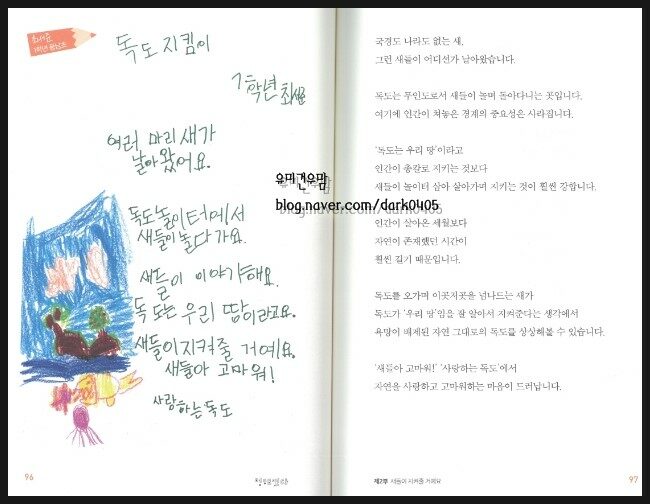 독도 지킴이
1학년 최서윤
여러 마리 새가
날아왔어요.
독도놀이터에서
새들이 놀다가요.
새들이 이야기해요.
독도는 우리 땅이라고요.
새들이 지켜줄 거예요.
새들아 고마워!
사랑하는 독도
96
국경도 나라도 없는 새,
그런 새들이 어디선가 날아왔습니다.
독도는 무인도로서 새들이 놀며 돌아다니는 곳입니다.
여기에 인간이 쳐놓은 경계의 중요성은 사라집니다.
'독도는 우리 땅'이라고
인간이 총칼로 지키는 것보다
새들이 놀이터 삼아 살아가며 지키는 것이 훨씬 강합니다.
유미건유맘
blog.naver.com/dark0405
인간이 살아온 세월보다
자연이 존재했던 시간이
훨씬 길기 때문입니다.
독도를 오가며 이곳저곳을 넘나드는 새가
독도가 '우리 땅'임을 잘 알아서 지켜준다는 생각에서
욕망이 배제된 자연 그대로의 독도를 상상해볼 수 있습니다.
'새들아 고마워!' '사랑하는 독도'에서
자연을 사랑하고 고마워하는 마음이 드러납니다.
제2부 새들이 지켜줄 거예요
97